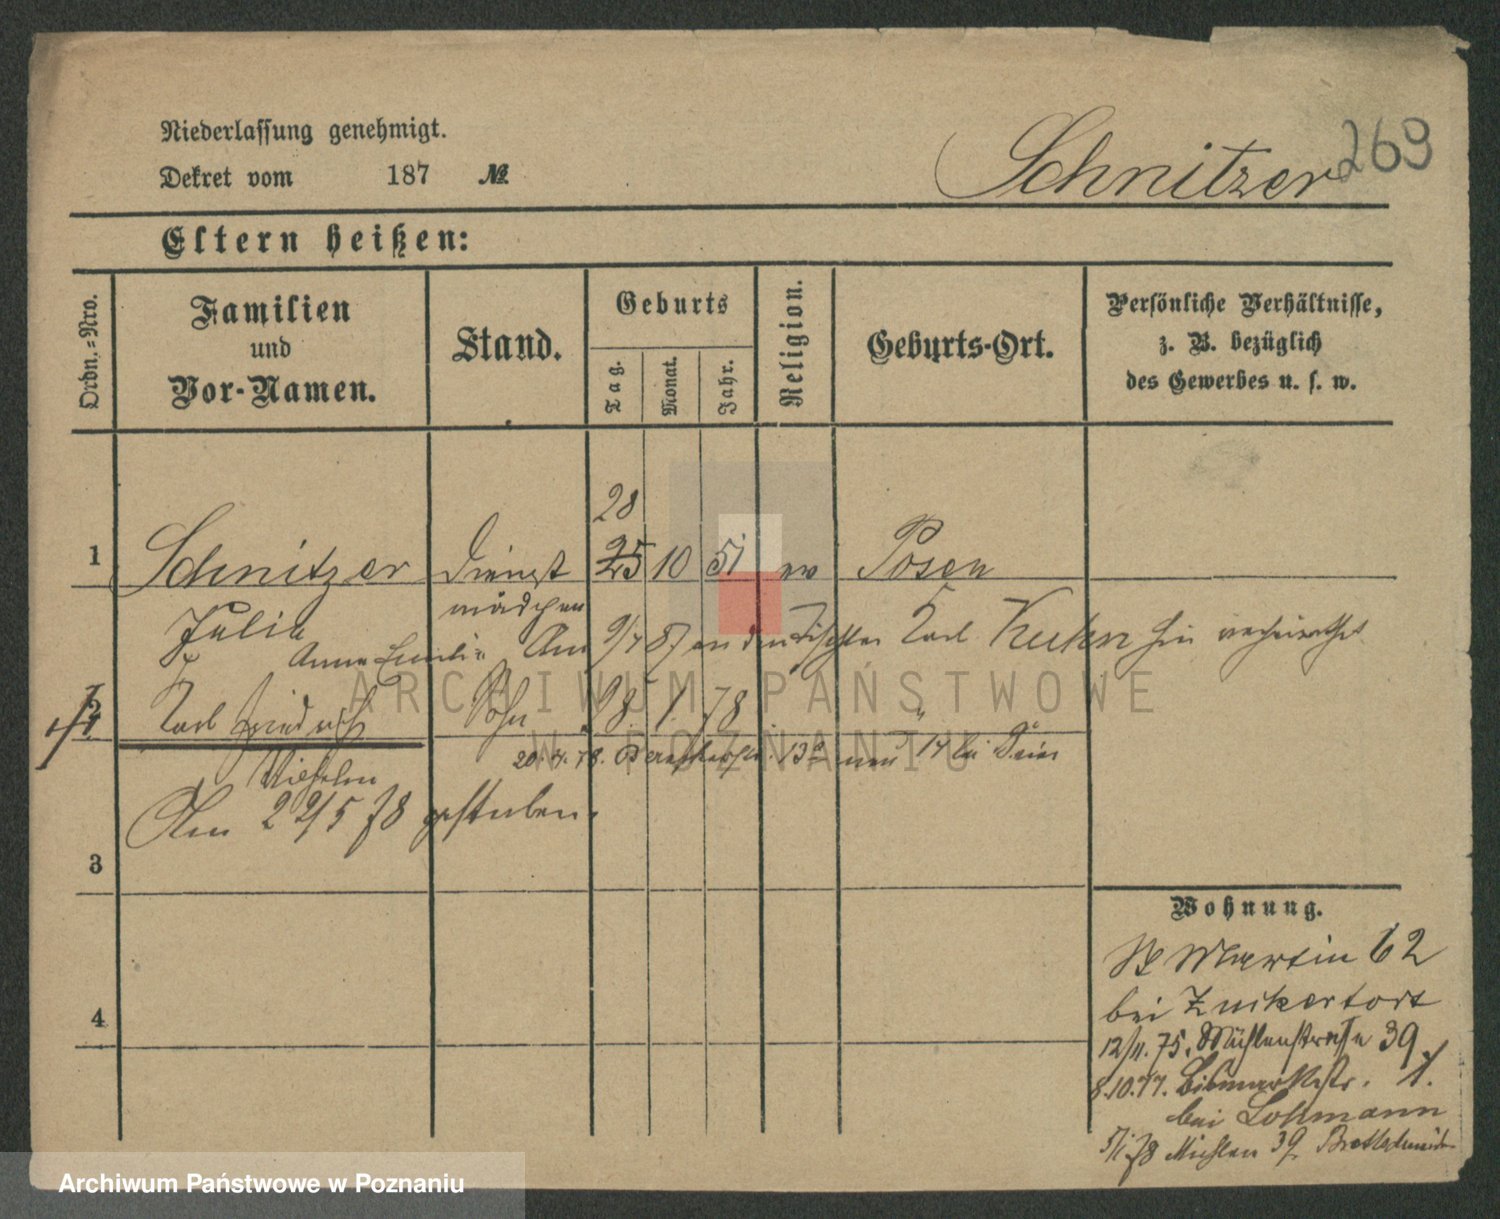 Niederlassung genehmigt.
Dekret vom 187 №
Schnitzer 269
Eltern heißen:
Ordn.-Nro.
Familien und Vor-Namen.
Stand.
Geburts
Tag.
Monat.
Jahr.
Religion.
Geburts-Ort.
Persönliche Verhältnisse,
z. B. bezüglich
des Gewerbes u. s. w.
28
1 Schnitzer Dienst 25 10 51 ev Posen
mädchen
Julia
Anna Emilie Am 9/7 87 an den Tischler Carl Kuhn hier verheirathet
2 Carl Friedrich Sohn 98 1. 78 "
Wilhelm
20.4.78. 13 neu 14 bei
Am 22/5 78 gestorben.
3
4
Wohnung.
St Martin 62
bei Zuckertort
12/11.75. Mühlenstrasse 39
8.10.77. Bismarckstr. 1.
bei Lohmann
5/1 78 Mühlen 39 Brettschneider
ARCHIWUM PAŃSTWOWE
W POZNANIU
Archiwum Państwowe w Poznaniu